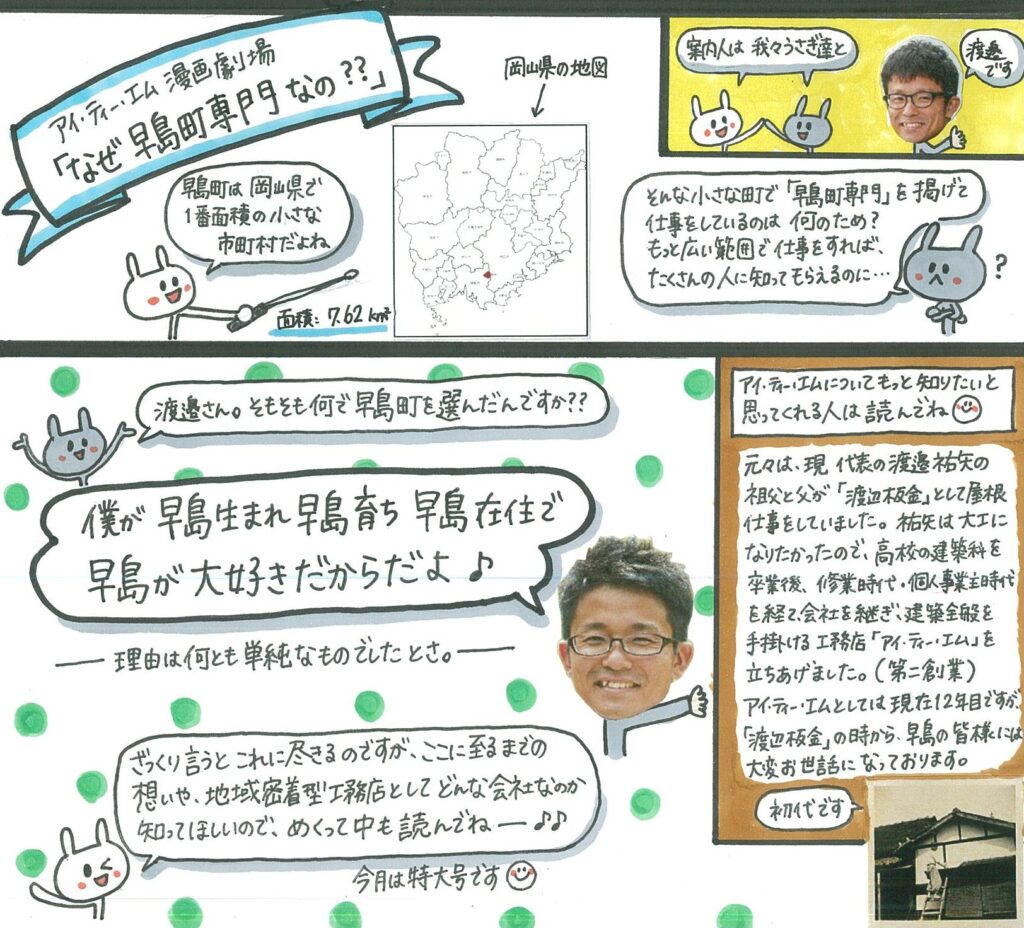 アイ・ティー・エム 漫画劇場
「なぜ 早島町専門 なの??」
岡山県の地図
早島町は 岡山県で
1番面積の小さな
市町村だよね
面積: 7.62 km²
案内人は 我々うさぎ達と
渡邉
です
そんな小さな町で「早島町専門」を掲げて
仕事をしているのは 何のため?
もっと広い範囲で仕事をすれば、
たくさんの人に知ってもらえるのに…
?
渡邉さん。そもそも何で早島町を選んだんですか??
僕が 早島生まれ 早島育ち 早島在住で
早島が大好きだからだよ♪
── 理由は何とも単純なものでしたとさ。──
ざっくり言うと これに尽きるのですが、ここに至るまでの
想いや、地域密着型工務店として どんな会社なのか
知ってほしいので、めくって中も 読んでねー♪♪
今月は特大号です
アイ・ティー・エムについてもっと知りたいと
思ってくれる人は 読んでね
元々は、現 代表の渡邉祐矢の
祖父と父が「渡辺板金」として屋根
仕事をしていました。祐矢は大工に
なりたかったので、高校の建築科を
卒業後、修業時代・個人事業主時代
を経て、会社を継ぎ、建築全般を
手掛ける 工務店「アイ・ティー・エム」を
立ちあげました。(第二創業)
アイ・ティー・エムとしては現在12年目ですが、
「渡辺板金」の時から、早島の皆様には
大変お世話になっております。
初代です